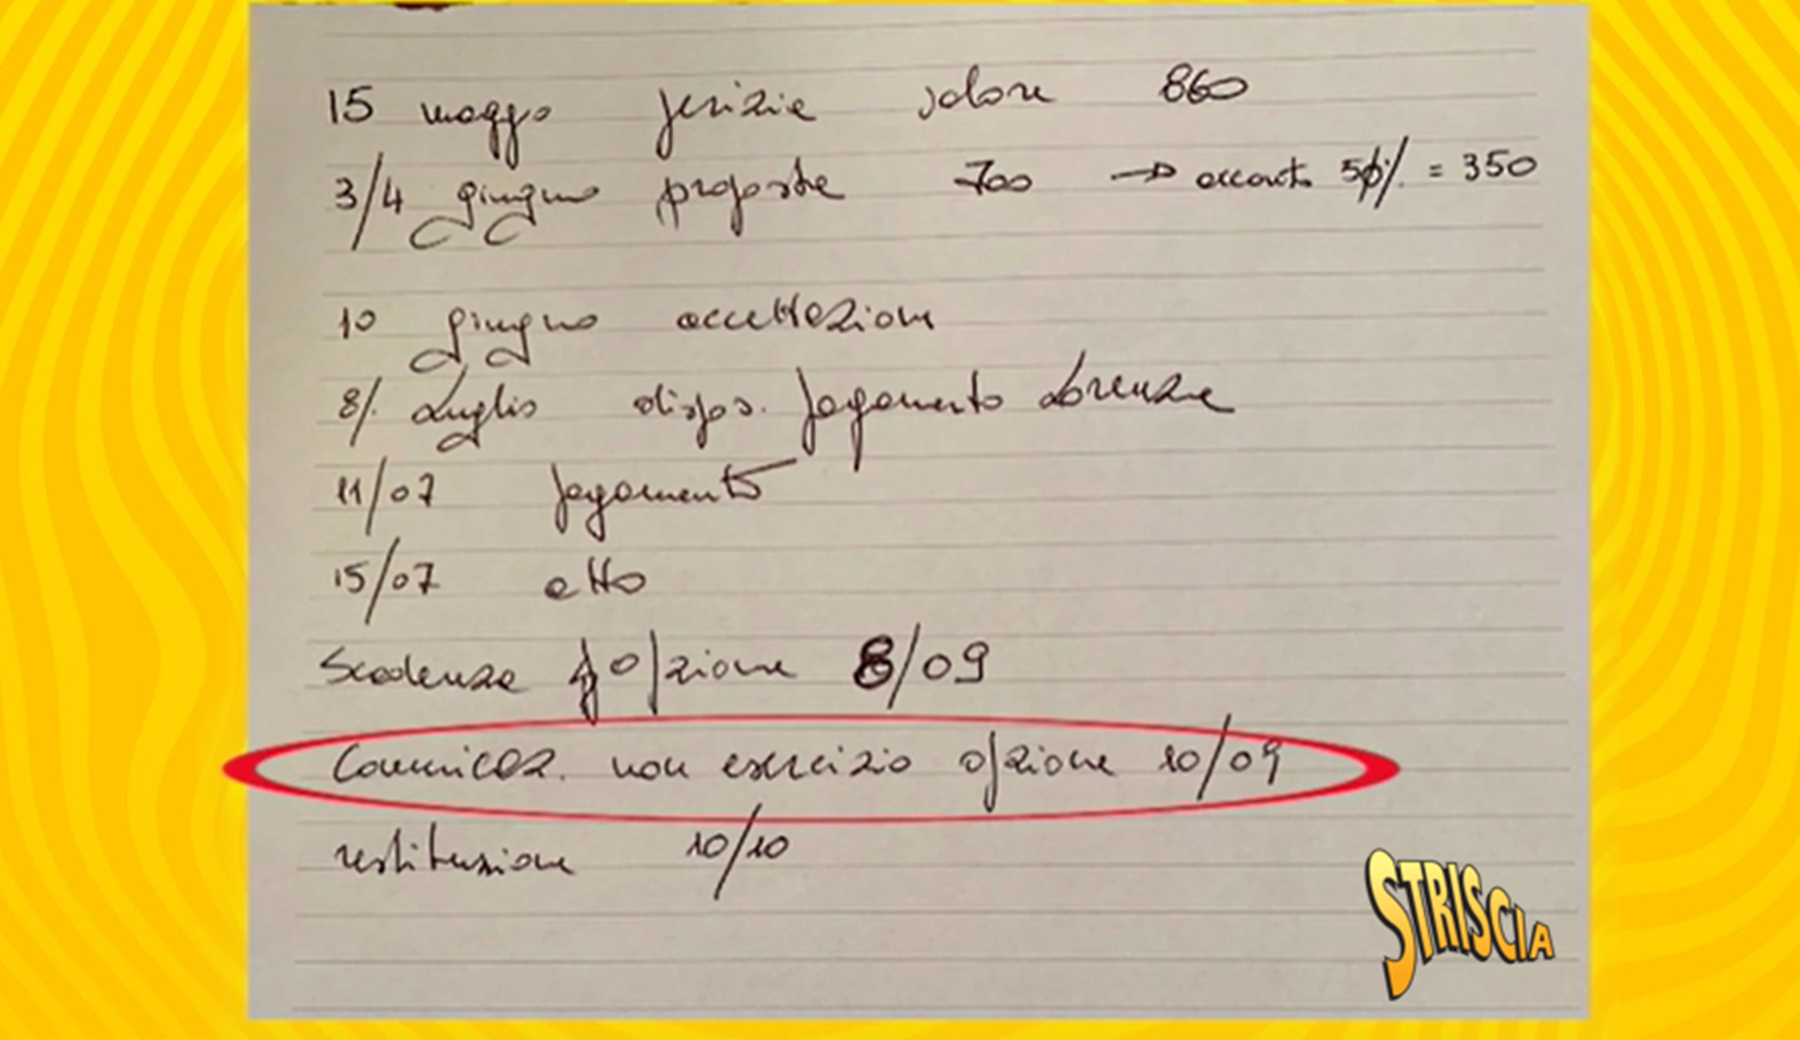 15 maggio perizia valore 860
3/4 giugno proposta 700 → acconto 50% = 350
10 giugno accettazione
8/. Luglio dispos. pagamento Lorenza
11/07 pagamento
15/07 atto
Scadenza opzione 8/09
Comunicaz. non esercizio opzione 10/09
restituzione 10/10
STRISCIA